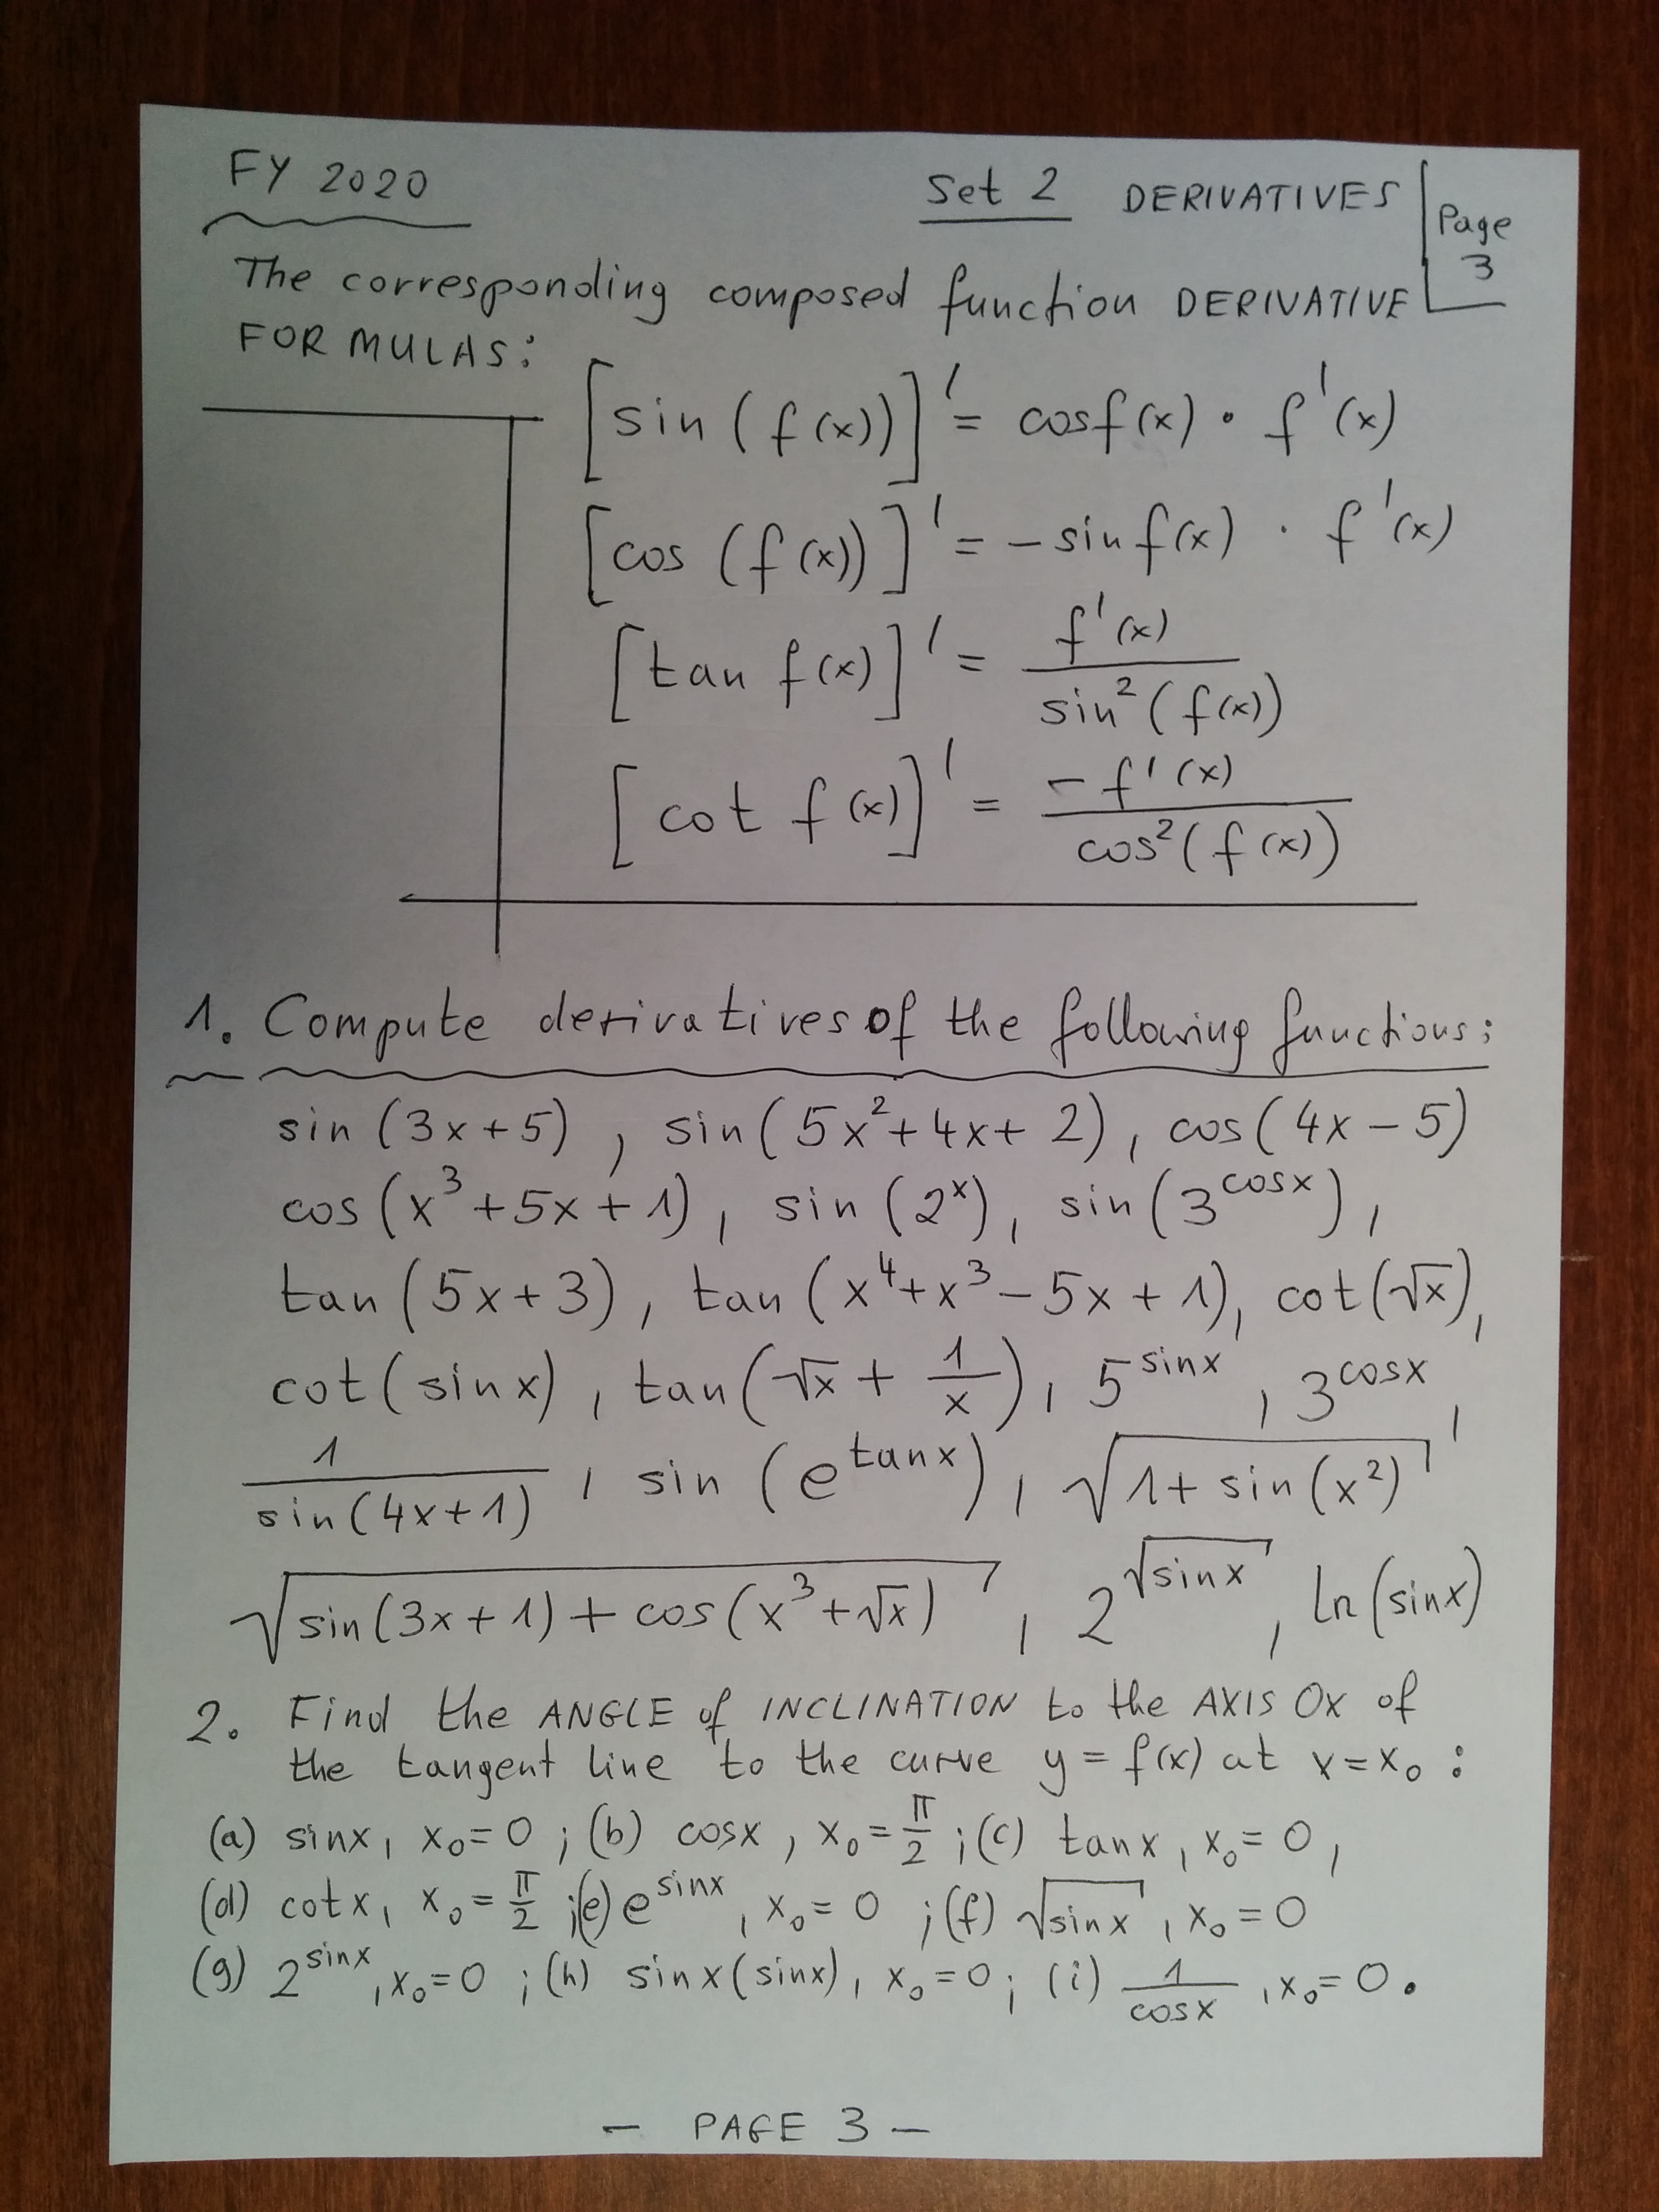 FY 2020 Set 2 DERIVATIVES Page 3
The corresponding composed function DERIVATIVE
FORMULAS:
[sin (f(x))]' = cosf(x) · f'(x)
[cos (f(x))]' = -sinf(x) · f'(x)
[tan f(x)]' = f'(x) / sin²(f(x))
[cot f(x)]' = -f'(x) / cos²(f(x))
1. Compute derivatives of the following functions:
sin (3x+5), sin(5x²+4x+2), cos(4x-5)
cos(x³+5x+1), sin(2^x), sin(3^cosx),
tan(5x+3), tan(x⁴+x³-5x+1), cot(√x),
cot(sinx), tan(√x + 1/x), 5^sinx, 3^cosx,
1/sin(4x+1), sin(e^tanx), √(1+sin(x²))
√(sin(3x+1)+cos(x³+√x)), 2^√(sinx), ln(sinx)
2. Find the ANGLE of INCLINATION to the AXIS OX of
the tangent line to the curve y = f(x) at x=x₀:
(a) sinx, x₀=0; (b) cosx, x₀=π/2; (c) tanx, x₀=0,
(d) cotx, x₀=π/2; (e) e^sinx, x₀=0; (f) √(sinx), x₀=0
(g) 2^sinx, x₀=0; (h) sinx(sinx), x₀=0; (i) 1/cosx, x₀=0.
- PAGE 3 -